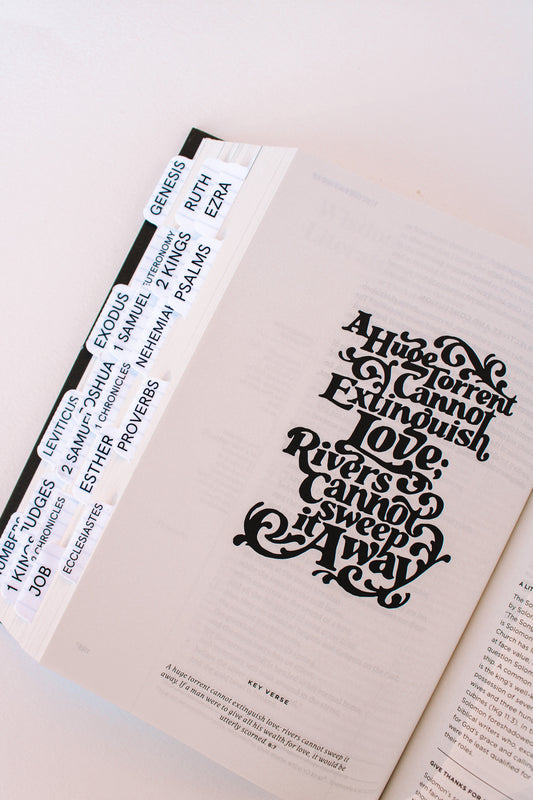 GENESIS
RUTH
EZRA
EUTERONOMY
2 KINGS
PSALMS
EXODUS
1 SAMUEL
NEHEMIAH
OSHUA
1 CHRONICLES
PROVERBS
LEVITICUS
2 SAMUEL
ESTHER
NUMBERS
JUDGES
CHRONICLES
1 KINGS
JOB
ECCLESIASTES
A Huge
Torrent
Cannot
Extinguish
Love;
Rivers
Cannot
sweep
it Away
KEY VERSE
A huge torrent cannot extinguish love; rivers cannot sweep it
away. If a man were to give all his wealth for love, it would be
utterly scorned. 8:7
A LIT
The So
by Solom
"The Song
is Solomon
Church has
at face value.
question Solom
ship. A common
is the king's well-k
possession of seve
wives and three hun
cubines (1Kg 11:3). In t
Solomon foreshadowed
biblical writers who, exce
for God's grace and calling
were the least qualified for
their roles.
GIVE THANKS FOR
Solomon's s